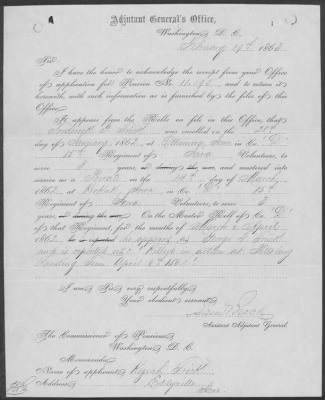 Adjutant General's Office,
Washington D. C.
February 19th, 1863
Sir:
I have the honor to acknowledge the receipt from your Office
of application for Pension No. and to return it
herewith, with such information as is furnished by the files of this
Office.
It appears from the Rolls on file in this Office, that
was enrolled on the 21st
day of January, 1862, at Iowa in Co. "D"
15th Regiment of Iowa Volunteers, to
serve 3 years, or during the war, and mustered into
service as a on the 14th day of March,
1862, at Keokuk, Iowa in Co. "D" 15th
Regiment of Iowa Volunteers, to serve 3
years, or during the war. On the Muster Roll of Co. "D"
of that Regiment, for the months of March & April,
1862, he is reported
is reported as: Killed in action at Pittsburg
Landing Tenn April 6th 1862
I am, Sir, very respectfully,
Your obedient servant,
Assistant Adjutant General.
The Commissioner of Pensions,
Washington, D. C.
Memoranda.
Name of applicant
Address
Iowa